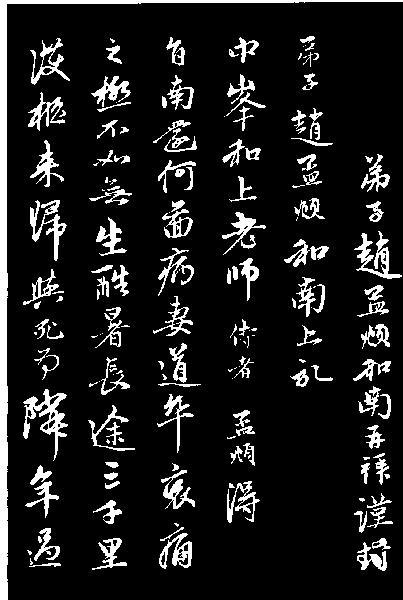 弟子趙孟頫和南再拜謹封
弟子趙孟頫和南上記
中峯和上老師侍者孟頫得
旨南還何圖病妻道卒哀痛
之極不如無生酷暑長途三千里
護柩来歸與死為隣年過